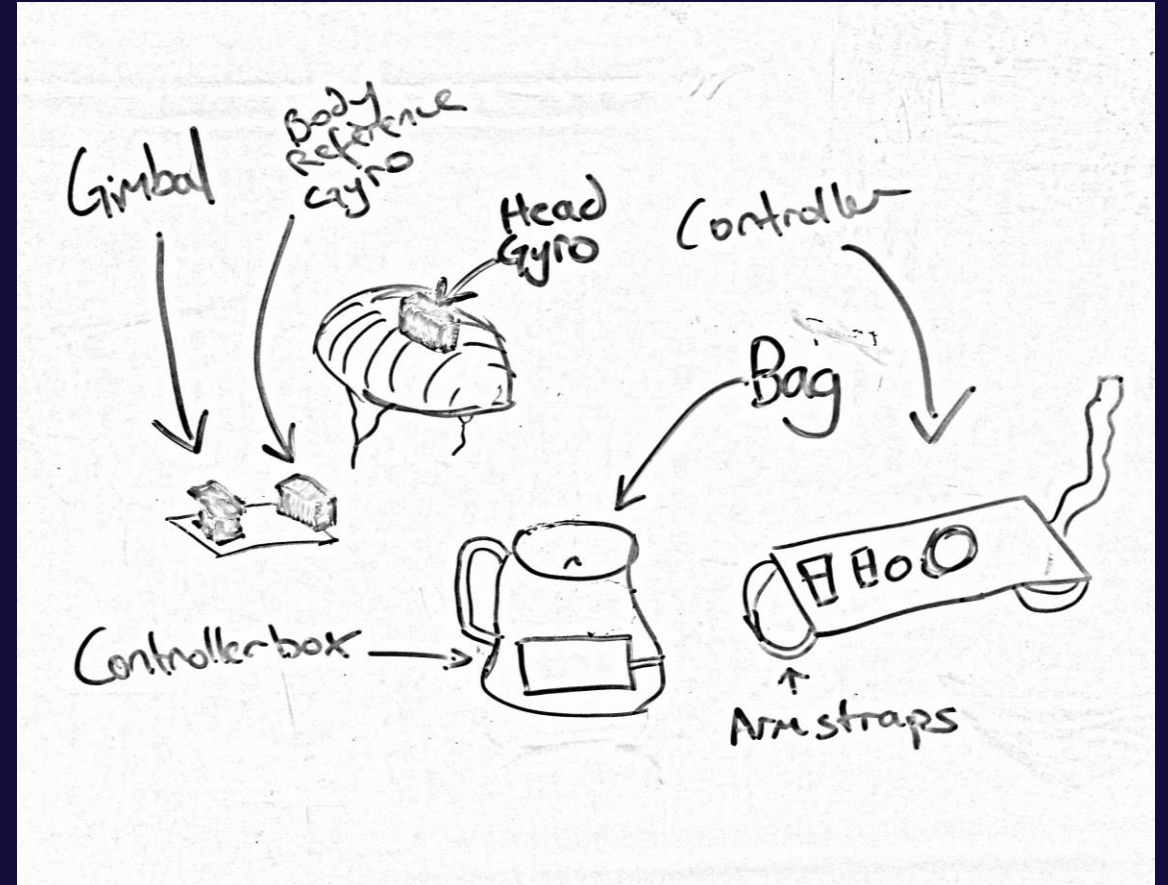 Gimbal
Body
Reference
Gyro
Head
Gyro
Controller
Bag
Controller box
Arm straps